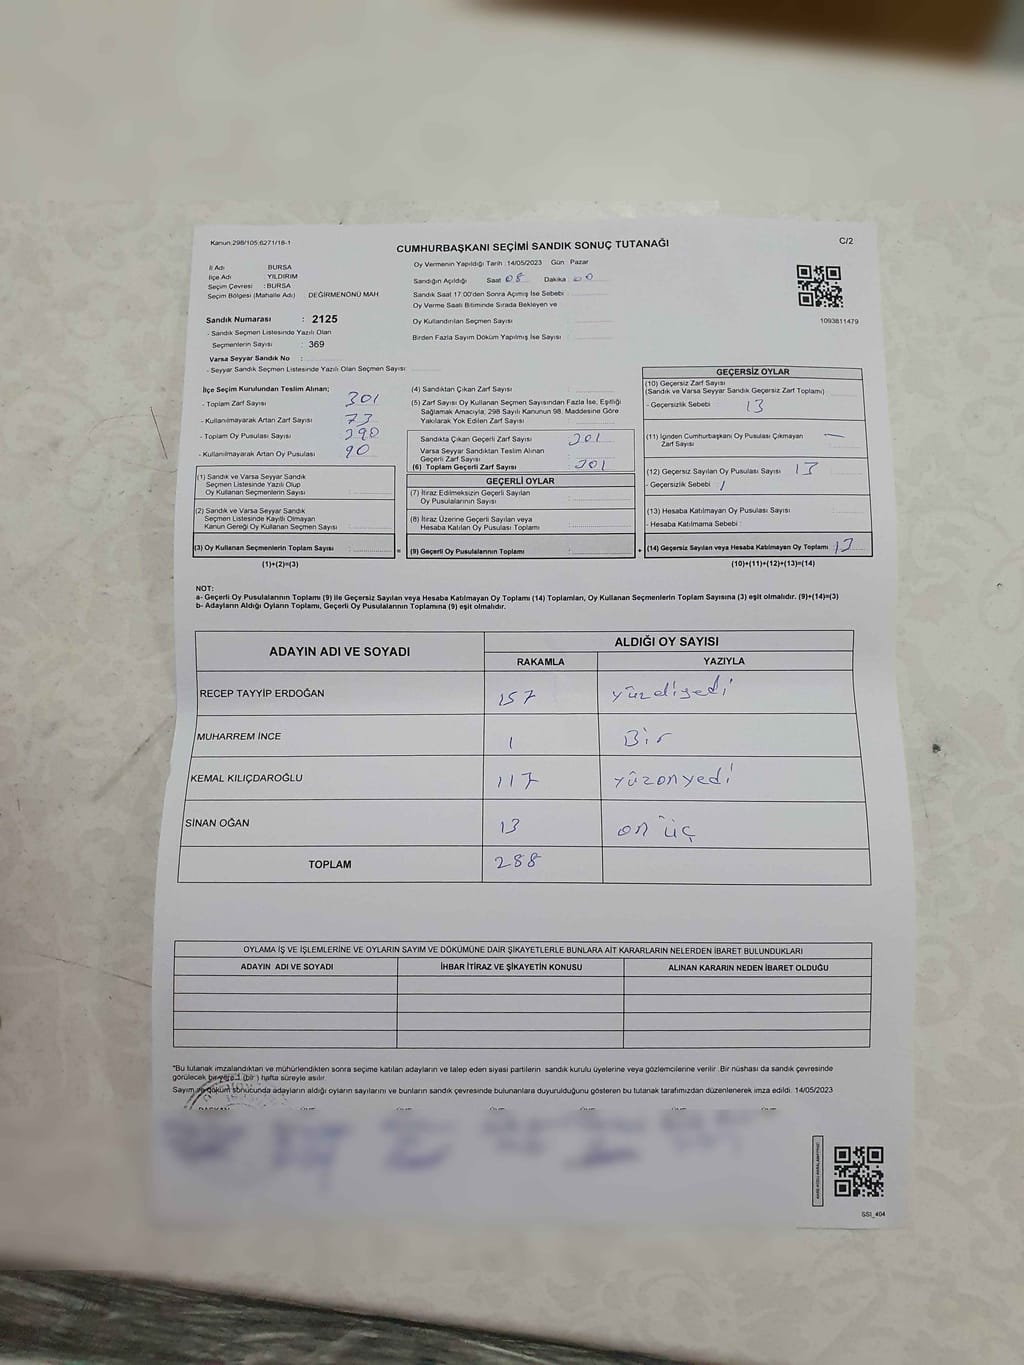 Kanun:298/105;6271/18-1
C/2
CUMHURBAŞKANI SEÇİMİ SANDIK SONUÇ TUTANAĞI
İl Adı BURSA
İlçe Adı YILDIRIM
Seçim Çevresi : BURSA
Seçim Bölgesi (Mahalle Adı) DEĞİRMENÖNÜ MAH.
Sandık Numarası : 2125
- Sandık Seçmen Listesinde Yazılı Olan
Seçmenlerin Sayısı : 369
Varsa Seyyar Sandık No :
- Seyyar Sandık Seçmen Listesinde Yazılı Olan Seçmen Sayısı
Oy Vermenin Yapıldığı Tarih : 14/05/2023 Gün Pazar
Sandığın Açıldığı Saat 08 Dakika 00
Sandık Saat 17:00'den Sonra Açımış İse Sebebi
Oy Verme Saati Bitiminde Sırada Bekleyen ve
Oy Kullandırılan Seçmen Sayısı
Birden Fazla Sayım Döküm Yapılmış İse Sayısı
1093811479
İlçe Seçim Kurulundan Teslim Alınan;
- Toplam Zarf Sayısı 301
- Kullanılmayarak Artan Zarf Sayısı 73
- Toplam Oy Pusulası Sayısı 390
- Kullanılmayarak Artan Oy Pusulası 90
(1) Sandık ve Varsa Seyyar Sandık
Seçmen Listesinde Yazılı Olup
Oy Kullanan Seçmenlerin Sayısı :
(2) Sandık ve Varsa Seyyar Sandık
Seçmen Listesinde Kayıtlı Olmayan
Kanun Gereği Oy Kullanan Seçmen Sayısı :
(3) Oy Kullanan Seçmenlerin Toplam Sayısı :
(1)+(2)=(3)
=
(4) Sandıktan Çıkan Zarf Sayısı :
(5) Zarf Sayısı Oy Kullanan Seçmen Sayısından Fazla İse, Eşitliği
Sağlamak Amacıyla; 298 Sayılı Kanunun 98. Maddesine Göre
Yakılarak Yok Edilen Zarf Sayısı :
Sandıkta Çıkan Geçerli Zarf Sayısı : 301
Varsa Seyyar Sandıktan Teslim Alınan
Geçerli Zarf Sayısı :
(6) Toplam Geçerli Zarf Sayısı : 301
GEÇERLİ OYLAR
(7) İtiraz Edilmeksizin Geçerli Sayılan
Oy Pusulalarının Sayısı :
(8) İtiraz Üzerine Geçerli Sayılan veya
Hesaba Katılan Oy Pusulası Toplamı :
(9) Geçerli Oy Pusulalarının Toplamı :
+
GEÇERSİZ OYLAR
(10) Geçersiz Zarf Sayısı
(Sandık ve Varsa Seyyar Sandık Geçersiz Zarf Toplamı)
- Geçersizlik Sebebi : 13
(11) İçinden Cumhurbaşkanı Oy Pusulası Çıkmayan
Zarf Sayısı —
(12) Geçersiz Sayılan Oy Pusulası Sayısı : 13
- Geçersizlik Sebebi /
(13) Hesaba Katılmayan Oy Pusulası Sayısı :
- Hesaba Katılmama Sebebi :
(14) Geçersiz Sayılan veya Hesaba Katılmayan Oy Toplamı : 13
(10)+(11)+(12)+(13)=(14)
NOT:
a- Geçerli Oy Pusulalarının Toplamı (9) ile Geçersiz Sayılan veya Hesaba Katılmayan Oy Toplamı (14) Toplamları, Oy Kullanan Seçmenlerin Toplam Sayısına (3) eşit olmalıdır. (9)+(14)=(3)
b- Adayların Aldığı Oyların Toplamı, Geçerli Oy Pusulalarının Toplamına (9) eşit olmalıdır.
ADAYIN ADI VE SOYADI ALDIĞI OY SAYISI
RAKAMLA YAZIYLA
RECEP TAYYİP ERDOĞAN 157 yüzdiyedi
MUHARREM İNCE 1 Bir
KEMAL KILIÇDAROĞLU 117 yüzonyedi
SİNAN OĞAN 13 on üç
TOPLAM 288
OYLAMA İŞ VE İŞLEMLERİNE VE OYLARIN SAYIM VE DÖKÜMÜNE DAİR ŞİKAYETLERLE BUNLARA AİT KARARLARIN NELERDEN İBARET BULUNDUKLARI
ADAYIN ADI VE SOYADI İHBAR İTİRAZ VE ŞİKAYETİN KONUSU ALINAN KARARIN NEDEN İBARET OLDUĞU
*Bu tutanak imzalandıktan ve mühürlendikten sonra seçime katılan adayların ve talep eden siyasi partilerin sandık kurulu üyelerine veya gözlemcilerine verilir. Bir nüshası da sandık çevresinde
görülecek bir yere 1 (bir) hafta süreyle asılır.
Sayım ve döküm sonucunda adayların aldığı oyların sayılarını ve bunların sandık çevresinde bulunanlara duyurulduğunu gösteren bu tutanak tarafımızdan düzenlenerek imza edildi. 14/05/2023
SSI_404